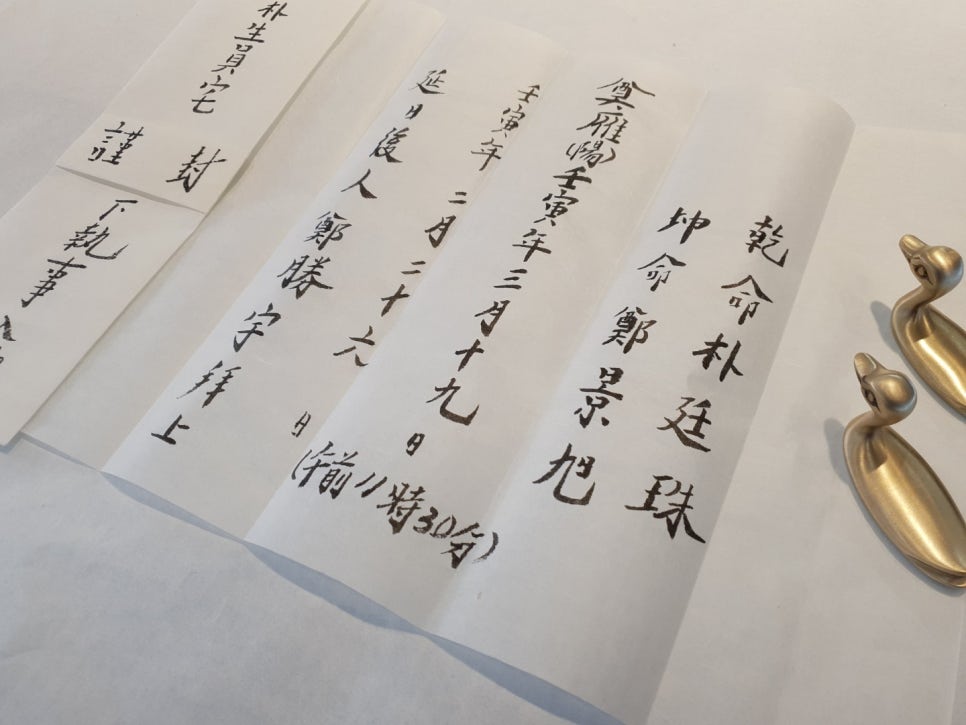 乾命朴廷珠
坤命鄭景旭
奠雁(陽)壬寅年三月十九日
(午前11時30分)
壬寅年 二月二十六日
延日後人鄭勝宇拜上
朴生員宅
謹封
下執事